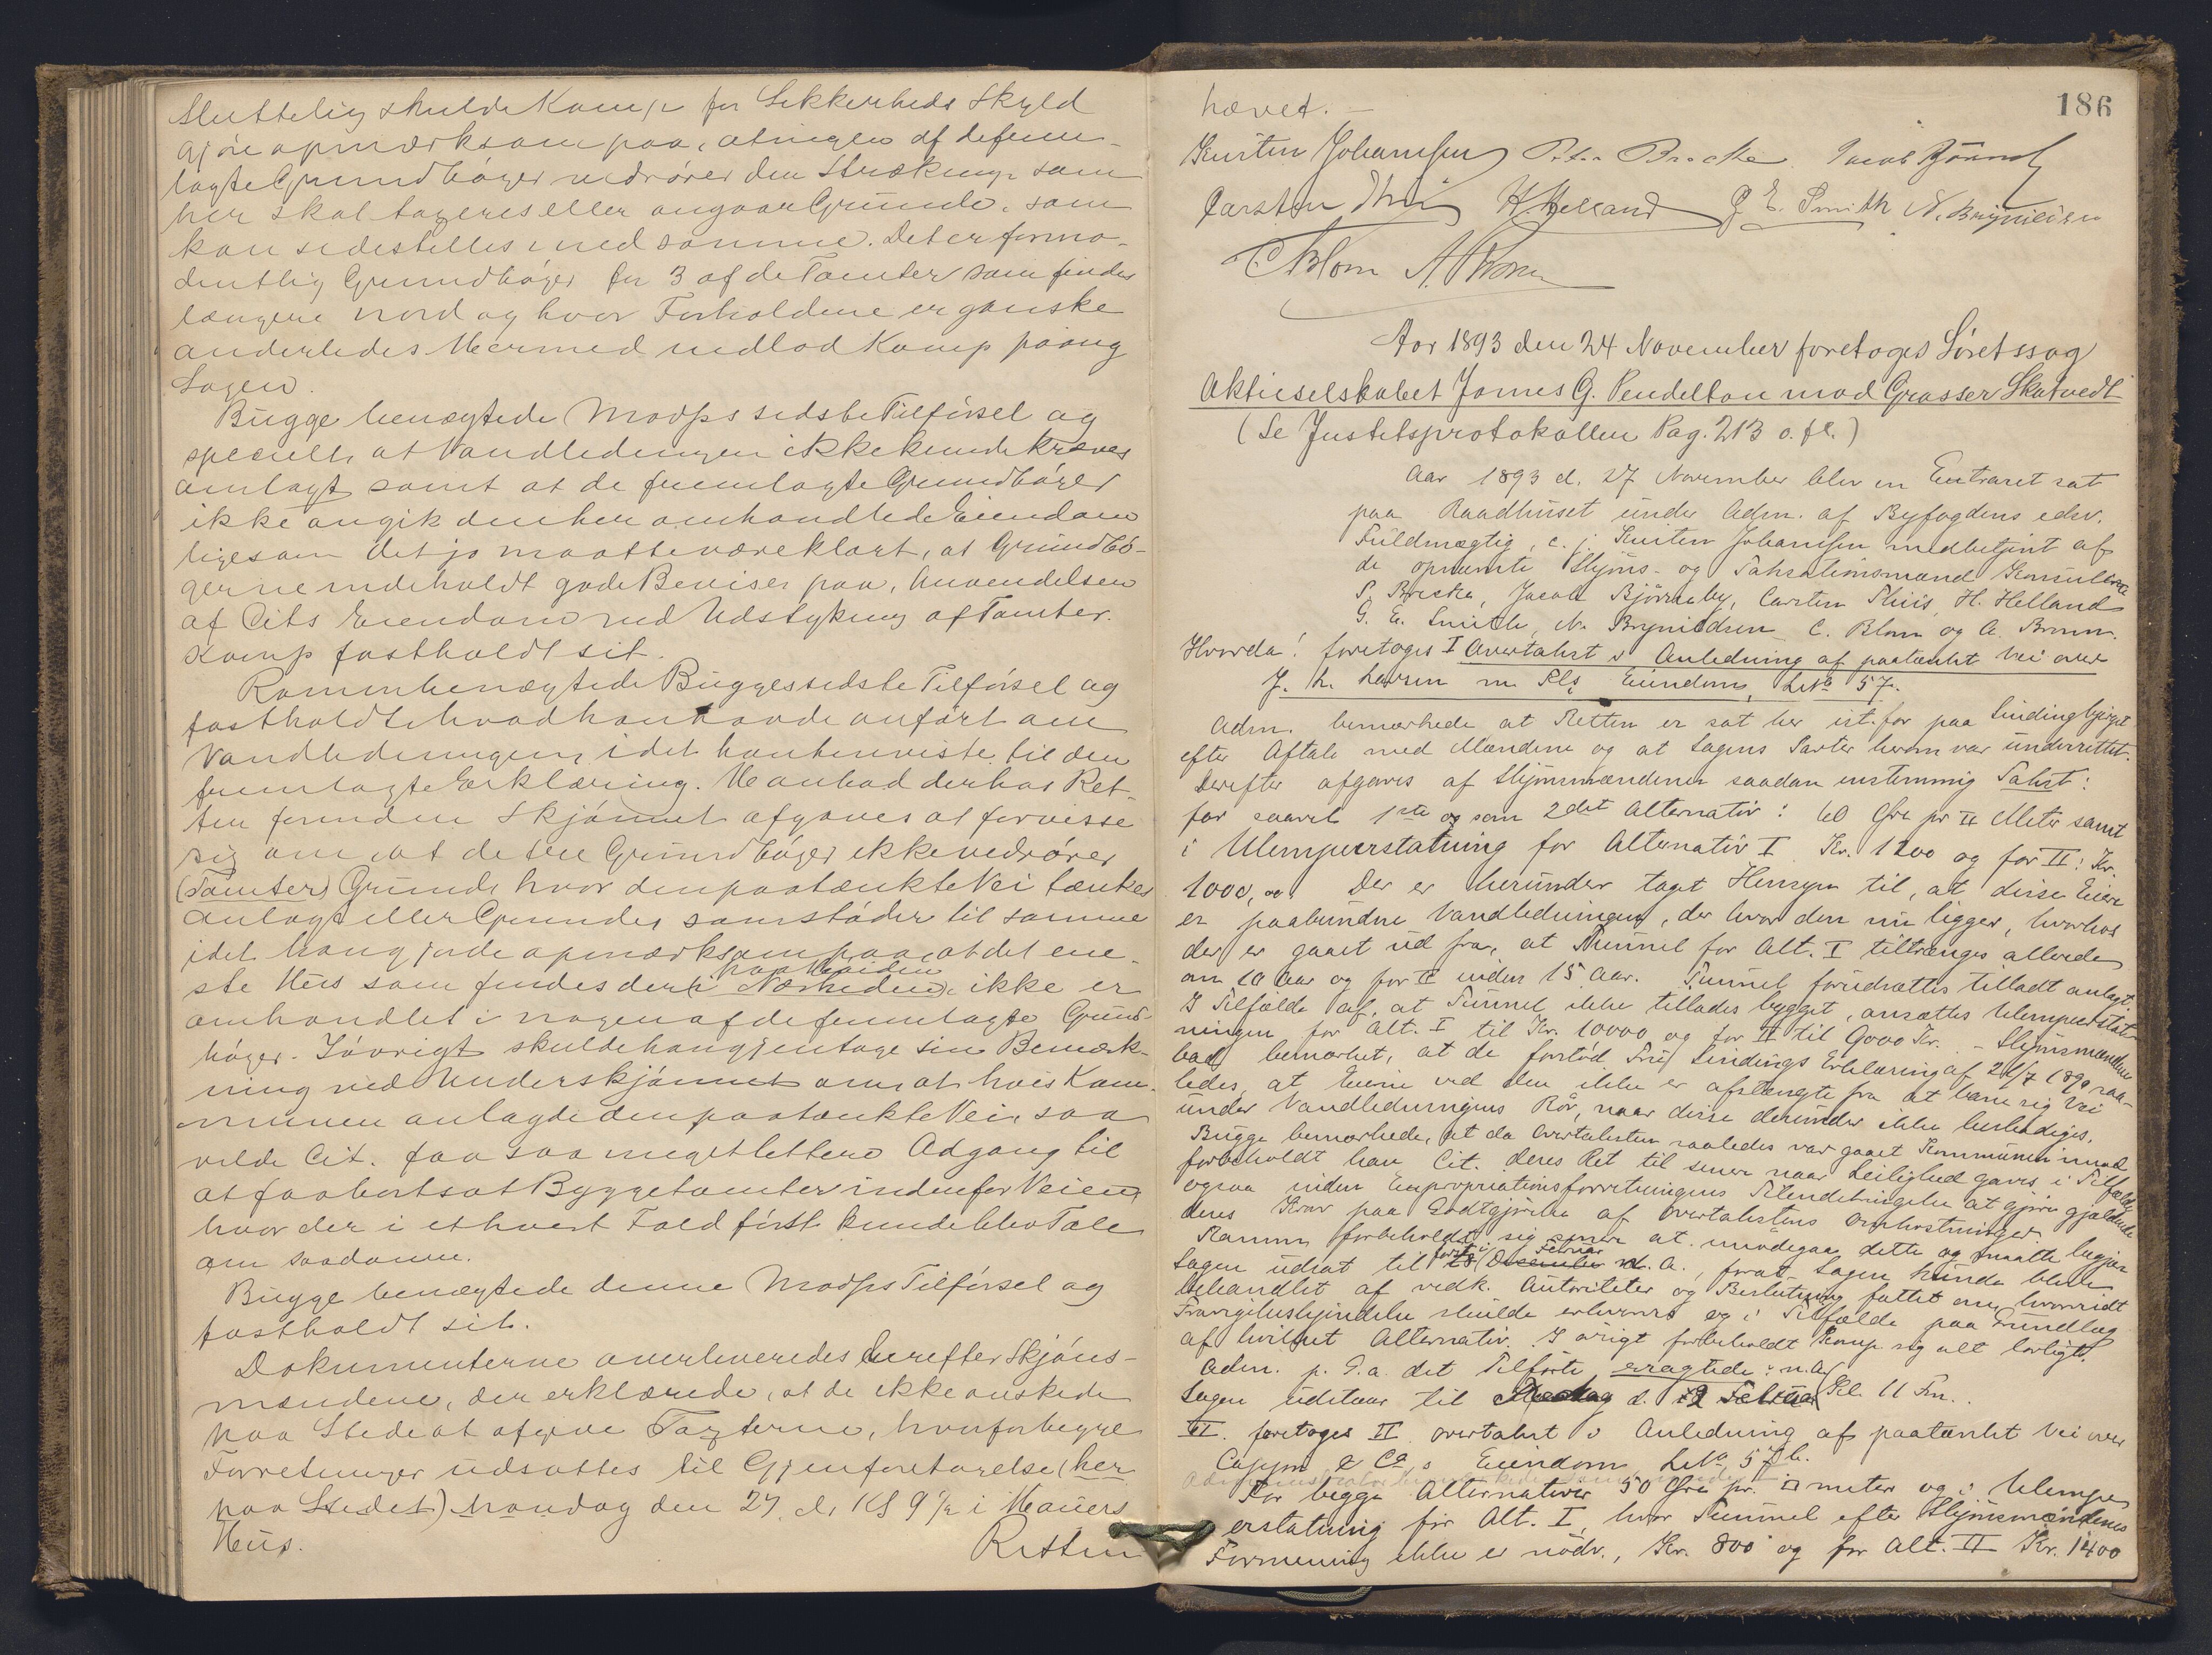 Sluttelig skulde Kamp for Sikkerheds Skyld
gjøre opmærksom paa, at ingen af de frem-
lagte Grundbøger vedrører den Strækning som
her skal taxeres eller angaar Grunde, som
kan sidestilles med samme. Det er formo-
dentlig Grundbøger for 3 af de Tomter som findes
længere nord og hvor Forholdene er ganske
anderledes. Hermed indlod Kamp paany
Sagen.
Bugge benægtede Modps sidste Tilførsel og
specielt at Vandledningen ikke kunde kræves
omlagt samt at de fremlagte Grundbøger
ikke angik den her omhandlede Eiendom
ligesom det jo maatte være klart, at Grundbø-
gerne indeholdt gode Beviser paa, Anvendelsen
af Cits Eiendom ved Udstykning af Tomter.
Kamp fastholdt sit.
Ramm benægtede Bugges sidste Tilførsel og
fastholdt hvad han havde anført om
Vandledningen, idet han henviste til den
fremlagte Erklæring. Han bad derhos Ret-
ten forinden Skjønnet afgaves at forvisse
sig om, at de tre Grundbøger ikke vedrører
(Tomter) Grunde hvor den paatænkte Vei tænkes
anlagt eller Grunde, som støder til samme
idet han gjorde opmærksom paa, at det ene-
paa Heiden
ste Hus som findes der (i Nærheden) ikke er
omhandlet i nogen af de fremlagte Grund-
bøger. Iøvrigt skulde han gjentage sin Bemærk-
ning ved Underskjønnet om, at hvis Kom-
munen anlagde den paatænkte Vei, saa
vilde Cit. faa saa meget lettere Adgang til
at faa bortsat Byggetomter indenfor Veien,
hvor der i ethvert Fald først kunde blive Tale
om saadanne.
Bugge benægtede denne Modps Tilførsel og
fastholdt sit.
Dokumenterne overleveredes derefter Skjøns-
mændene, der erklærede, at de ikke ønskede
paa Stedet at afgive Taxterne, hvorfor begge
Forretninger udsattes til Gjenforetagelse (her
paa Stedet) Mandag den 27. ds. Kl 9½ i Hauers
Hus.
Retten
186
hævet. –
Kristen Johanssen Peter Brecke Jacob Bjørneby
Carsten Thiis H. Helland G. E. Smith N. Brynildsen
C. Blom A. Bruun
Aar 1893 den 24 November foretoges Søretssag
Aktieselskabet James G. Pendelton mod Grosser Skatvedt
(Se Justitsprotokollen Pag. 213 o. fl.)
Aar 1893 d. 27 November blev en Extraret sat
paa Raadhuset under Adm. af Byfogdens edsv.
Fuldmægtig, c. j. Kristen Johanssen medbetjent af
de opnævnte Skjøns- og Taxationsmænd Konsulerne
P. Brecke, Jacob Bjørneby, Carsten Thiis, H. Helland
G. E. Smith, N. Brynildsen C. Blom og A. Bruun.
Hvorda! foretoges I Overtaxt i Anledning af paatænkt Vei over
J. N. m. Fls Eiendom, Litra 57.
Adm. bemærkede at Retten er sat her ist. for paa Lindingbjerget
efter Aftale med Mændene og at Sagens Parter herom var underrettet.
Derefter afgaves af Skjønsmændene saadan enstemmig Taxt:
for saavel 1ste og som 2det Alternativ: 60 Øre pr □ Meter samt
i Ulempeerstatning for Alternativ I Kr. 1200 og for II: Kr.
1000,00. Der er herunder taget Hensyn til, at disse Eiere
er paabundne Vandledningen, der hvor den nu ligger, hvorhos
der er gaaet ud fra, at Tunnel for Alt. I tiltrænges allerede
om 10 Aar og for II inden 15 Aar. Tunnel forudsættes tilladt anlagt.
I Tilfælde af, at Tunnel ikke tillades bygget, ansættes Ulempeerstat-
ningen for Alt. I til Kr. 10000 og for II til 9000 Kr. – Skjønsmændene
bad bemærket, at de forstod Fru Lindings Erklæring af 21/7 1890 saa-
ledes, at Eierne ved den ikke er afstængte fra at bane sig Vei
under Vandledningens Rør, naar disse derunder ikke beskadiges.
Bugge bemærkede, at da Overtaxten saaledes var gaaet Kommunen imod
forbeholdt han Cit. deres Ret til senere naar Leilighed gaves i Tilfælde
ogsaa inden Expropriationsforretningens Tilendebringelse at gjøre gjældende
deres Krav paa Godtgjørelse af Overtaxtens Omkostninger.
Ramm forbeholdt sig senere at imødegaa dette og maatte begjære
først i Februar
Sagen udsat til 18 December n. A., forat Sagen kunde blive
behandlet af vedk. Autoriteter og Beslutning fattet om hvorvidt
Fravigelseskjendelse skulde erhverves og i Tilfælde paa Grundlag
af hvilket Alternativ. I øvrigt forbeholdt Kamp sig alt lovligt.
Adm. p. G. a. det Tilførte eragtede: n. A.
Sagen udstaar til d. 12 Februar Kl. 11 Fm.
II. foretoges II overtaxt i Anledning af paatænkt Vei over
Cappm & Co.s Eiendom, Litra 57 b.
For begge Alternativer 50 Øre pr. □ meter og i Ulempe
erstatning for Alt. I, hvor Tunnel efter Skjønsmændenes
Formening ikke er nødv., Kr. 800 og for Alt. II Kr. 1400